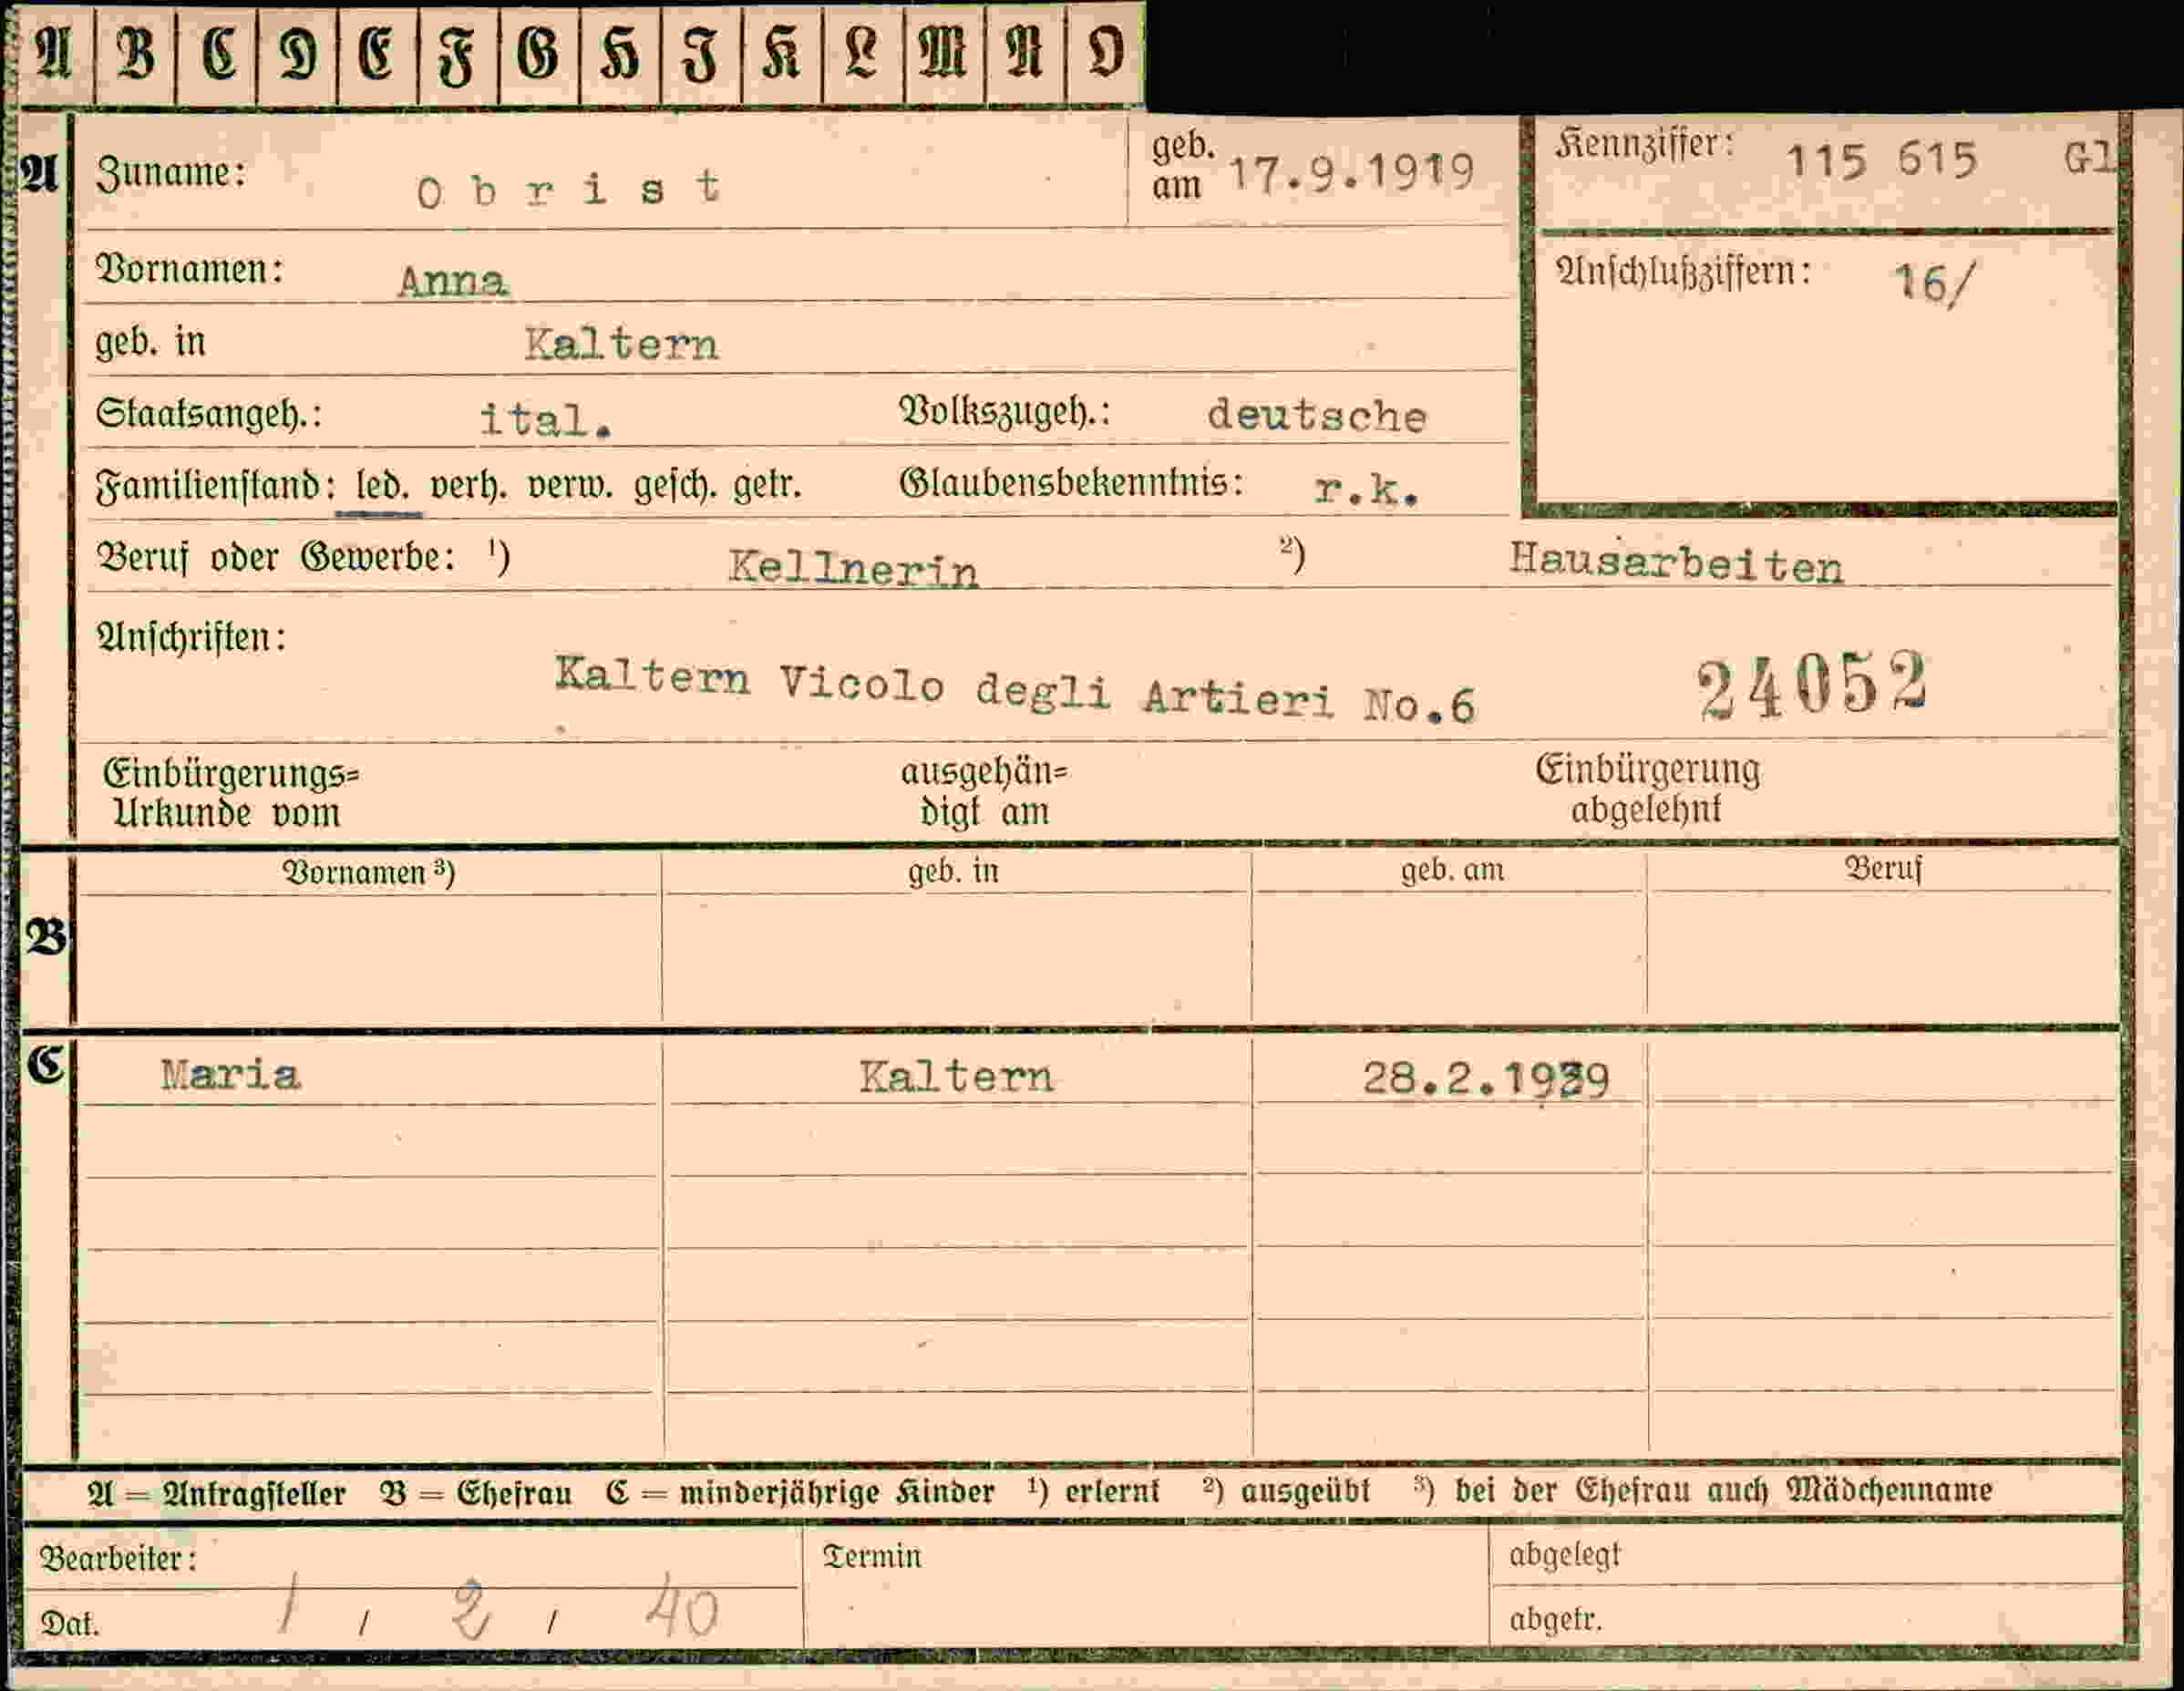 A B C D E F G H I K L M N O
A Zuname: Obrist geb. am 17.9.1919 Kennziffer: 115 615 Gl
Vornamen: Anna Anschlußziffern: 16/
geb. in Kaltern
Staatsangeh.: ital. Volkszugeh.: deutsche
Familienstand: led. verh. verw. gesch. getr. Glaubensbekenntnis: r.k.
Beruf oder Gewerbe: ¹) Kellnerin ²) Hausarbeiten
Anschriften: Kaltern Vicolo degli Artieri No.6 24052
Einbürgerungs= ausgehän= Einbürgerung
Urkunde vom digt am abgelehnt
Vornamen ³) geb. in geb. am Beruf
B
C Maria Kaltern 28.2.1939
A = Antragsteller B = Ehefrau C = minderjährige Kinder ¹) erlernt ²) ausgeübt ³) bei der Ehefrau auch Mädchenname
Bearbeiter: Termin abgelegt
Dat. 1 / 2 / 40 abgetr.